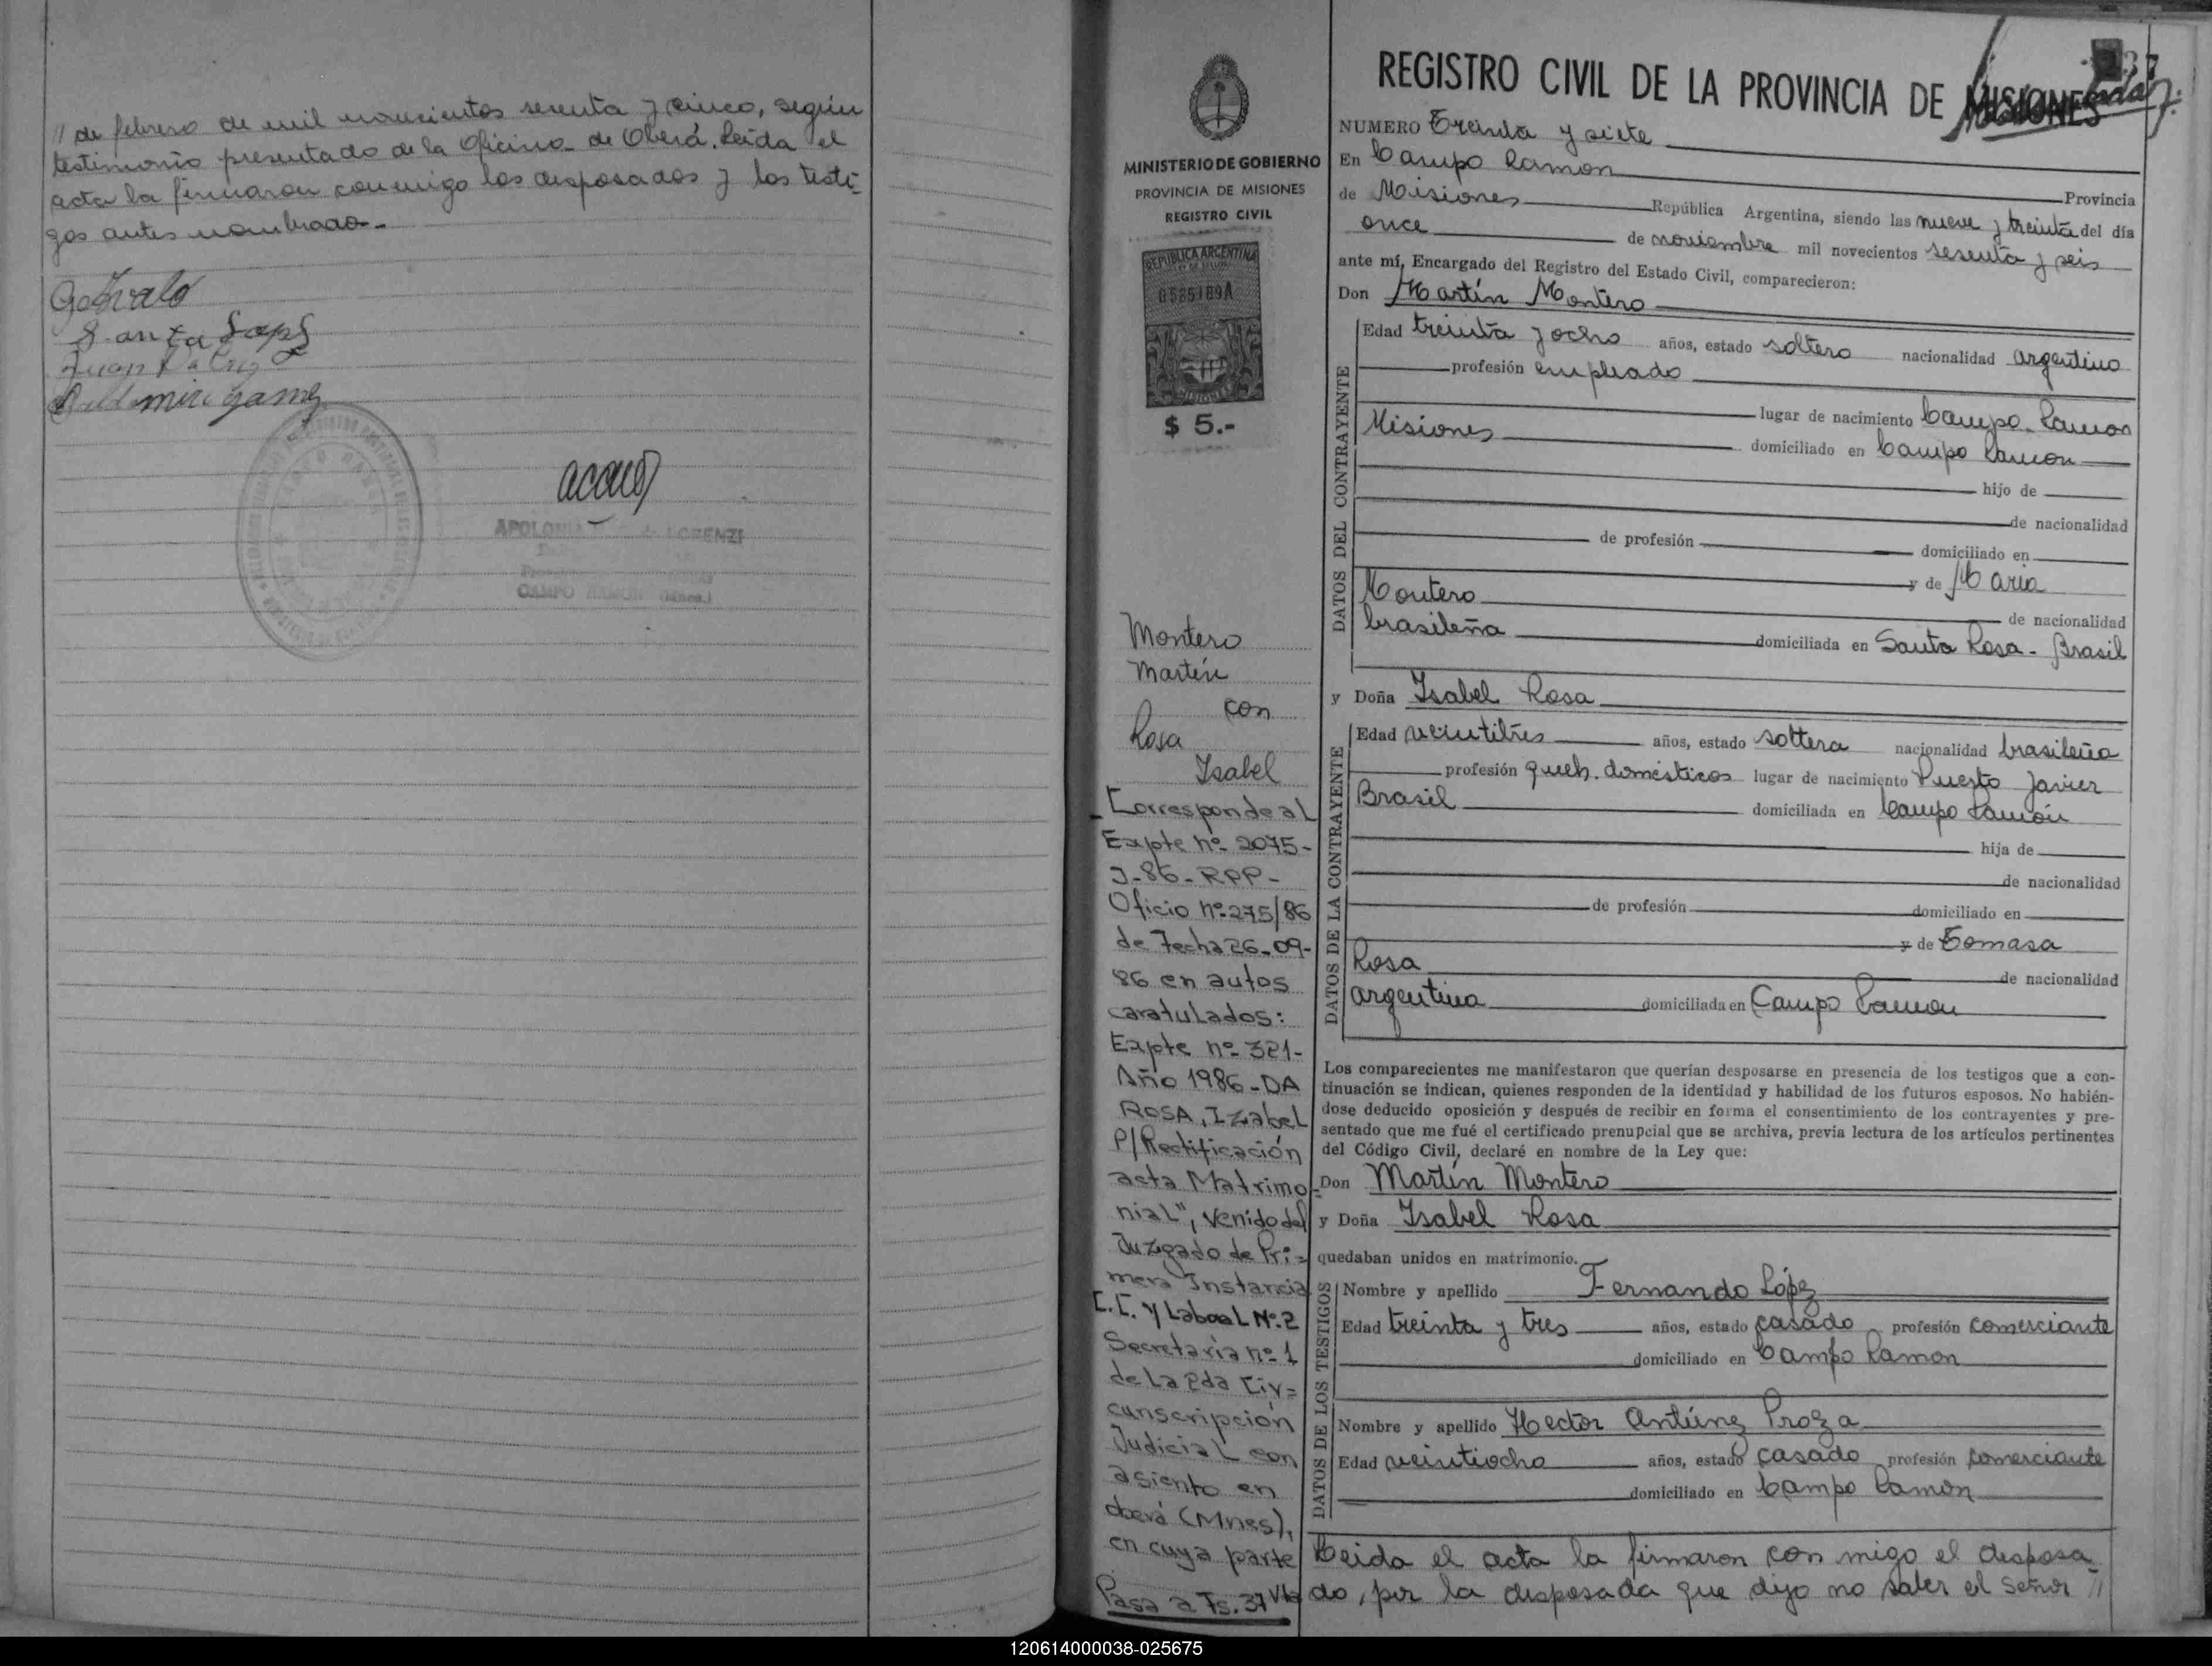 // de febrero de mil novecientos sesenta y cinco, según
testimonio presentado de la Oficina de Oberá. Leída el
acta la firmaron conmigo los desposados y los testi-
gos antes nombrados.-
Santa
Juan Da Cruz
APOLONIA de LORENZI
CAMPO RAMON (Mnes.)
MINISTERIO DE GOBIERNO
PROVINCIA DE MISIONES
REGISTRO CIVIL
REPUBLICA ARGENTINA
0585189A
MISIONES
$ 5.-
Montero
Martín
con
Rosa
Isabel
Corresponde al
Expte nº 2075-
J-86-RPP-
Oficio nº 275/86
de Fecha 26-09-
86 en autos
caratulados:
Expte nº 321-
Año 1986-DA
ROSA, Izabel
P/Rectificación
acta Matrimo-
nial", venido del
Juzgado de Pri-
mera Instancia
C.C. y Laboral Nº.2
Secretaría nº 1
de La 2da Cir=
cunscripción
Judicial con
asiento en
oberá (Mnes),
en cuya parte
Pasa a Fs. 37 Vta
REGISTRO CIVIL DE LA PROVINCIA DE MISIONES
37
NUMERO Treinta y siete
En Campo Ramon Provincia
de Misiones República Argentina, siendo las nueve y treinta del día
once de noviembre mil novecientos sesenta y seis
ante mí, Encargado del Registro del Estado Civil, comparecieron:
Don Martín Montero
DATOS DEL CONTRAYENTE
Edad treinta y ocho años, estado soltero nacionalidad argentino
profesión empleado
lugar de nacimiento Campo Ramon
Misiones domiciliado en Campo Ramon
hijo de
de nacionalidad
de profesión domiciliado en
y de Maria
Montero de nacionalidad
brasileña domiciliada en Santa Rosa - Brasil
y Doña Isabel Rosa
DATOS DE LA CONTRAYENTE
Edad veintitrés años, estado soltera nacionalidad brasileña
profesión queh. domésticos lugar de nacimiento Puerto Javier
Brasil domiciliada en Campo Ramón
hija de
de nacionalidad
de profesión domiciliado en
y de Tomasa
Rosa de nacionalidad
argentina domiciliada en Campo Ramon
Los comparecientes me manifestaron que querían desposarse en presencia de los testigos que a con-
tinuación se indican, quienes responden de la identidad y habilidad de los futuros esposos. No habién-
dose deducido oposición y después de recibir en forma el consentimiento de los contrayentes y pre-
sentado que me fué el certificado prenupcial que se archiva, previa lectura de los artículos pertinentes
del Código Civil, declaré en nombre de la Ley que:
Don Martín Montero
y Doña Isabel Rosa
quedaban unidos en matrimonio.
DATOS DE LOS TESTIGOS
Nombre y apellido Fernando López
Edad treinta y tres años, estado casado profesión comerciante
domiciliado en Campo Ramon
Nombre y apellido Hector Antúnez Proza
Edad veintiocho años, estado casado profesión comerciante
domiciliado en Campo Ramon
Leida el acta la firmaron con migo el desposa
do, por la desposada que dijo no saber el señor //
120614000038-025675